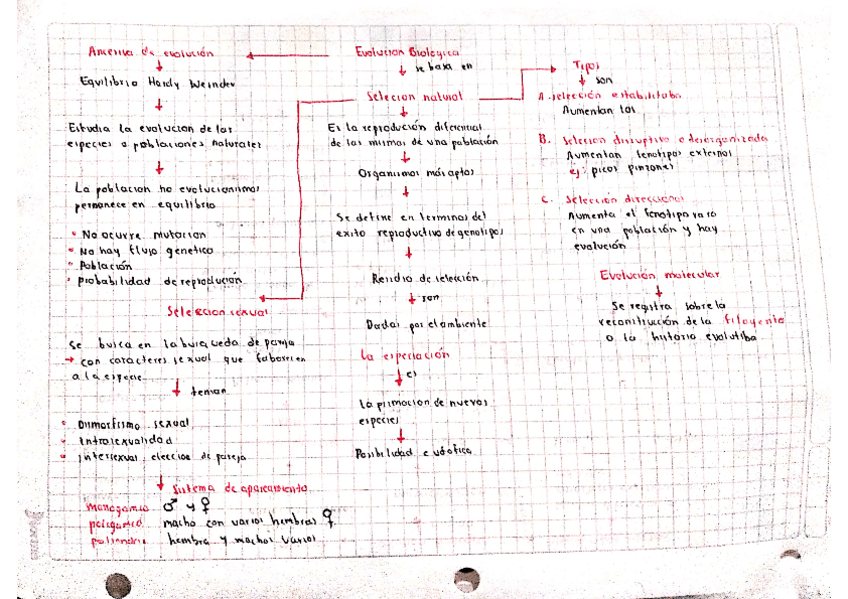 Evolucion Biologica
se basa en
Selecion natural
Es la reprodución diferencial
de las mismas de una población
Organismos más aptos
Se define en terminos del
exito reproductivo de genotipos
de selección
son
Dadas por el ambiente
La especiación
es
la de nuevas
especies
Posibilidad
Ausencia de evolución
Equilibrio Hardy Weinder
Estudia la evolucion de las
especies o poblaciones naturales
La poblacion no
permanece en equilibrio
No ocurre mutacion
No hay flujo genetico
Población
probabilidad de reprodución
Seleccion sexual
se busca en la busqueda de pareja
con caracteres sexual que faborecen
a la especie
teman
Dimorfismo sexual
Introsexualidad
intersexual eleccion de pareja
Sistema de apareamiento
monogamia ♂ y ♀
macho con varios hembras ♀
hembra y machos varios
Tipos
son
A. selección
Aumentan los
B. Selecion disruptiva o desorganizada
Aumentan fenotipos externos
ej: picos pinzones
C. Selección direccional
Aumenta el fenotipo raro
en una población y hay
evolución
Evolución molecular
Se registra sobre la
de la
o la historia evolutiba